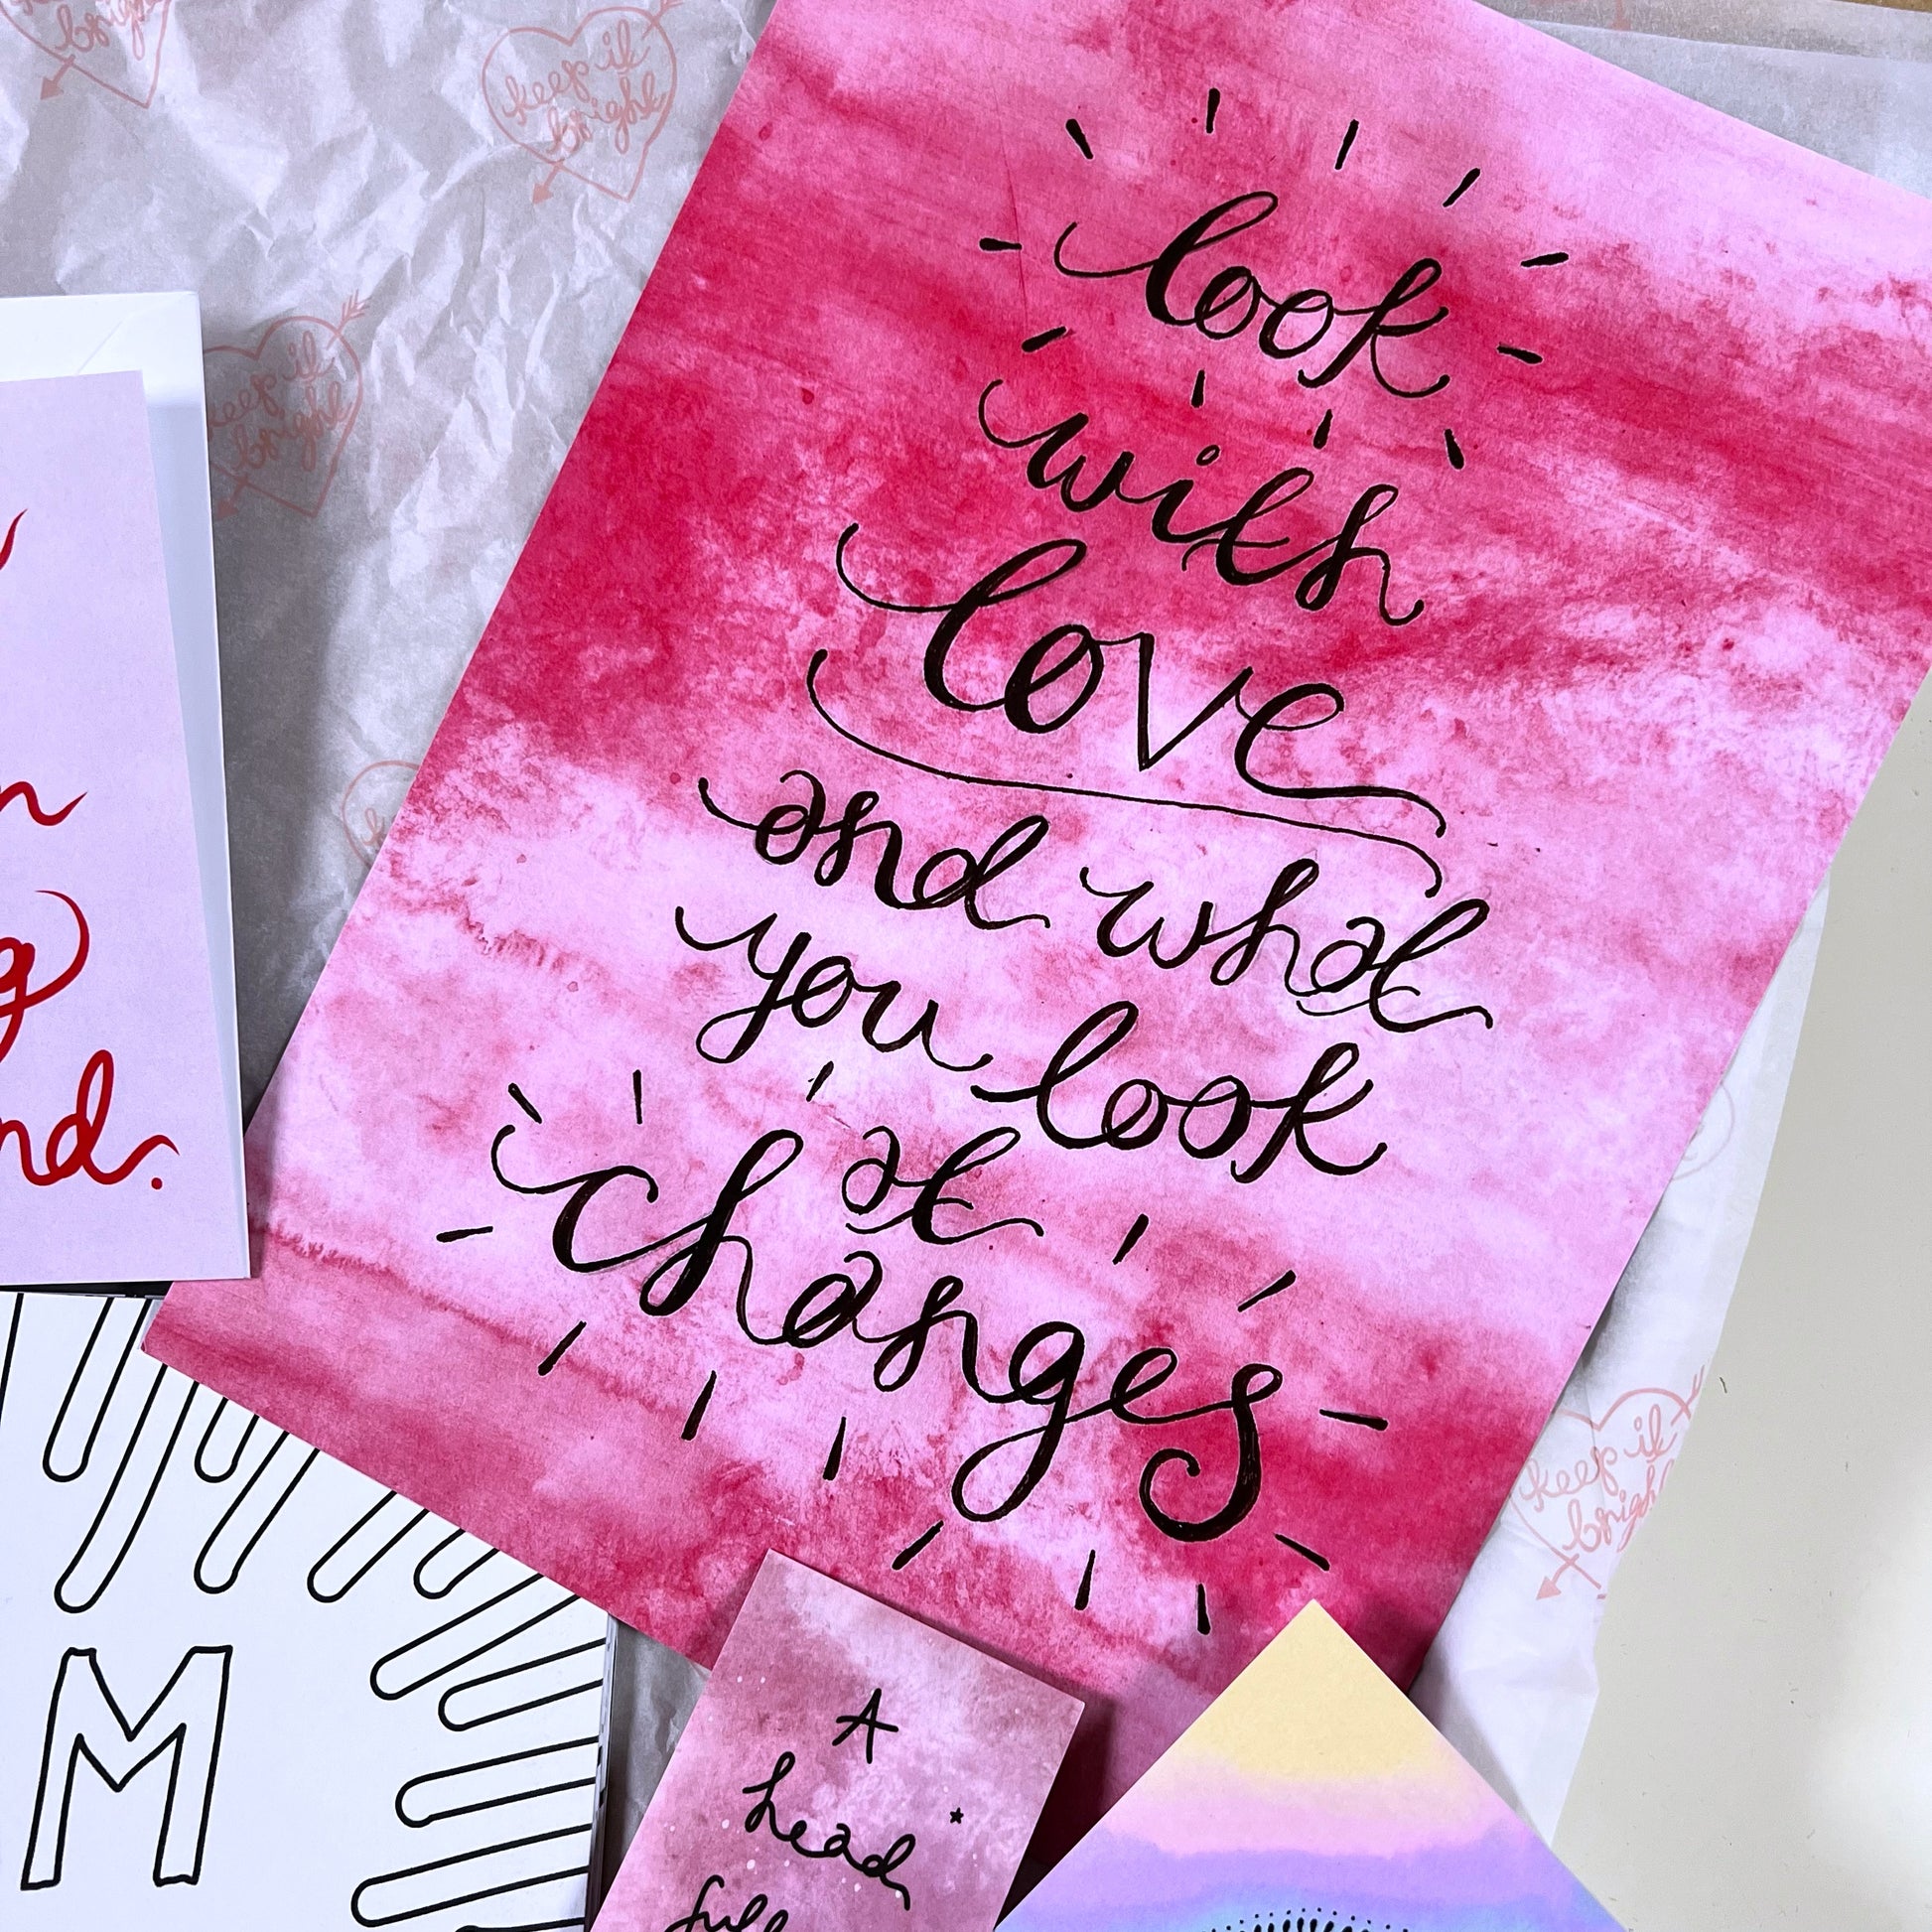 look
with
love
and what
you look
at
changes
keep it
bright
keep it
bright
keep it
bright
bright
nd.
M
A
head
full